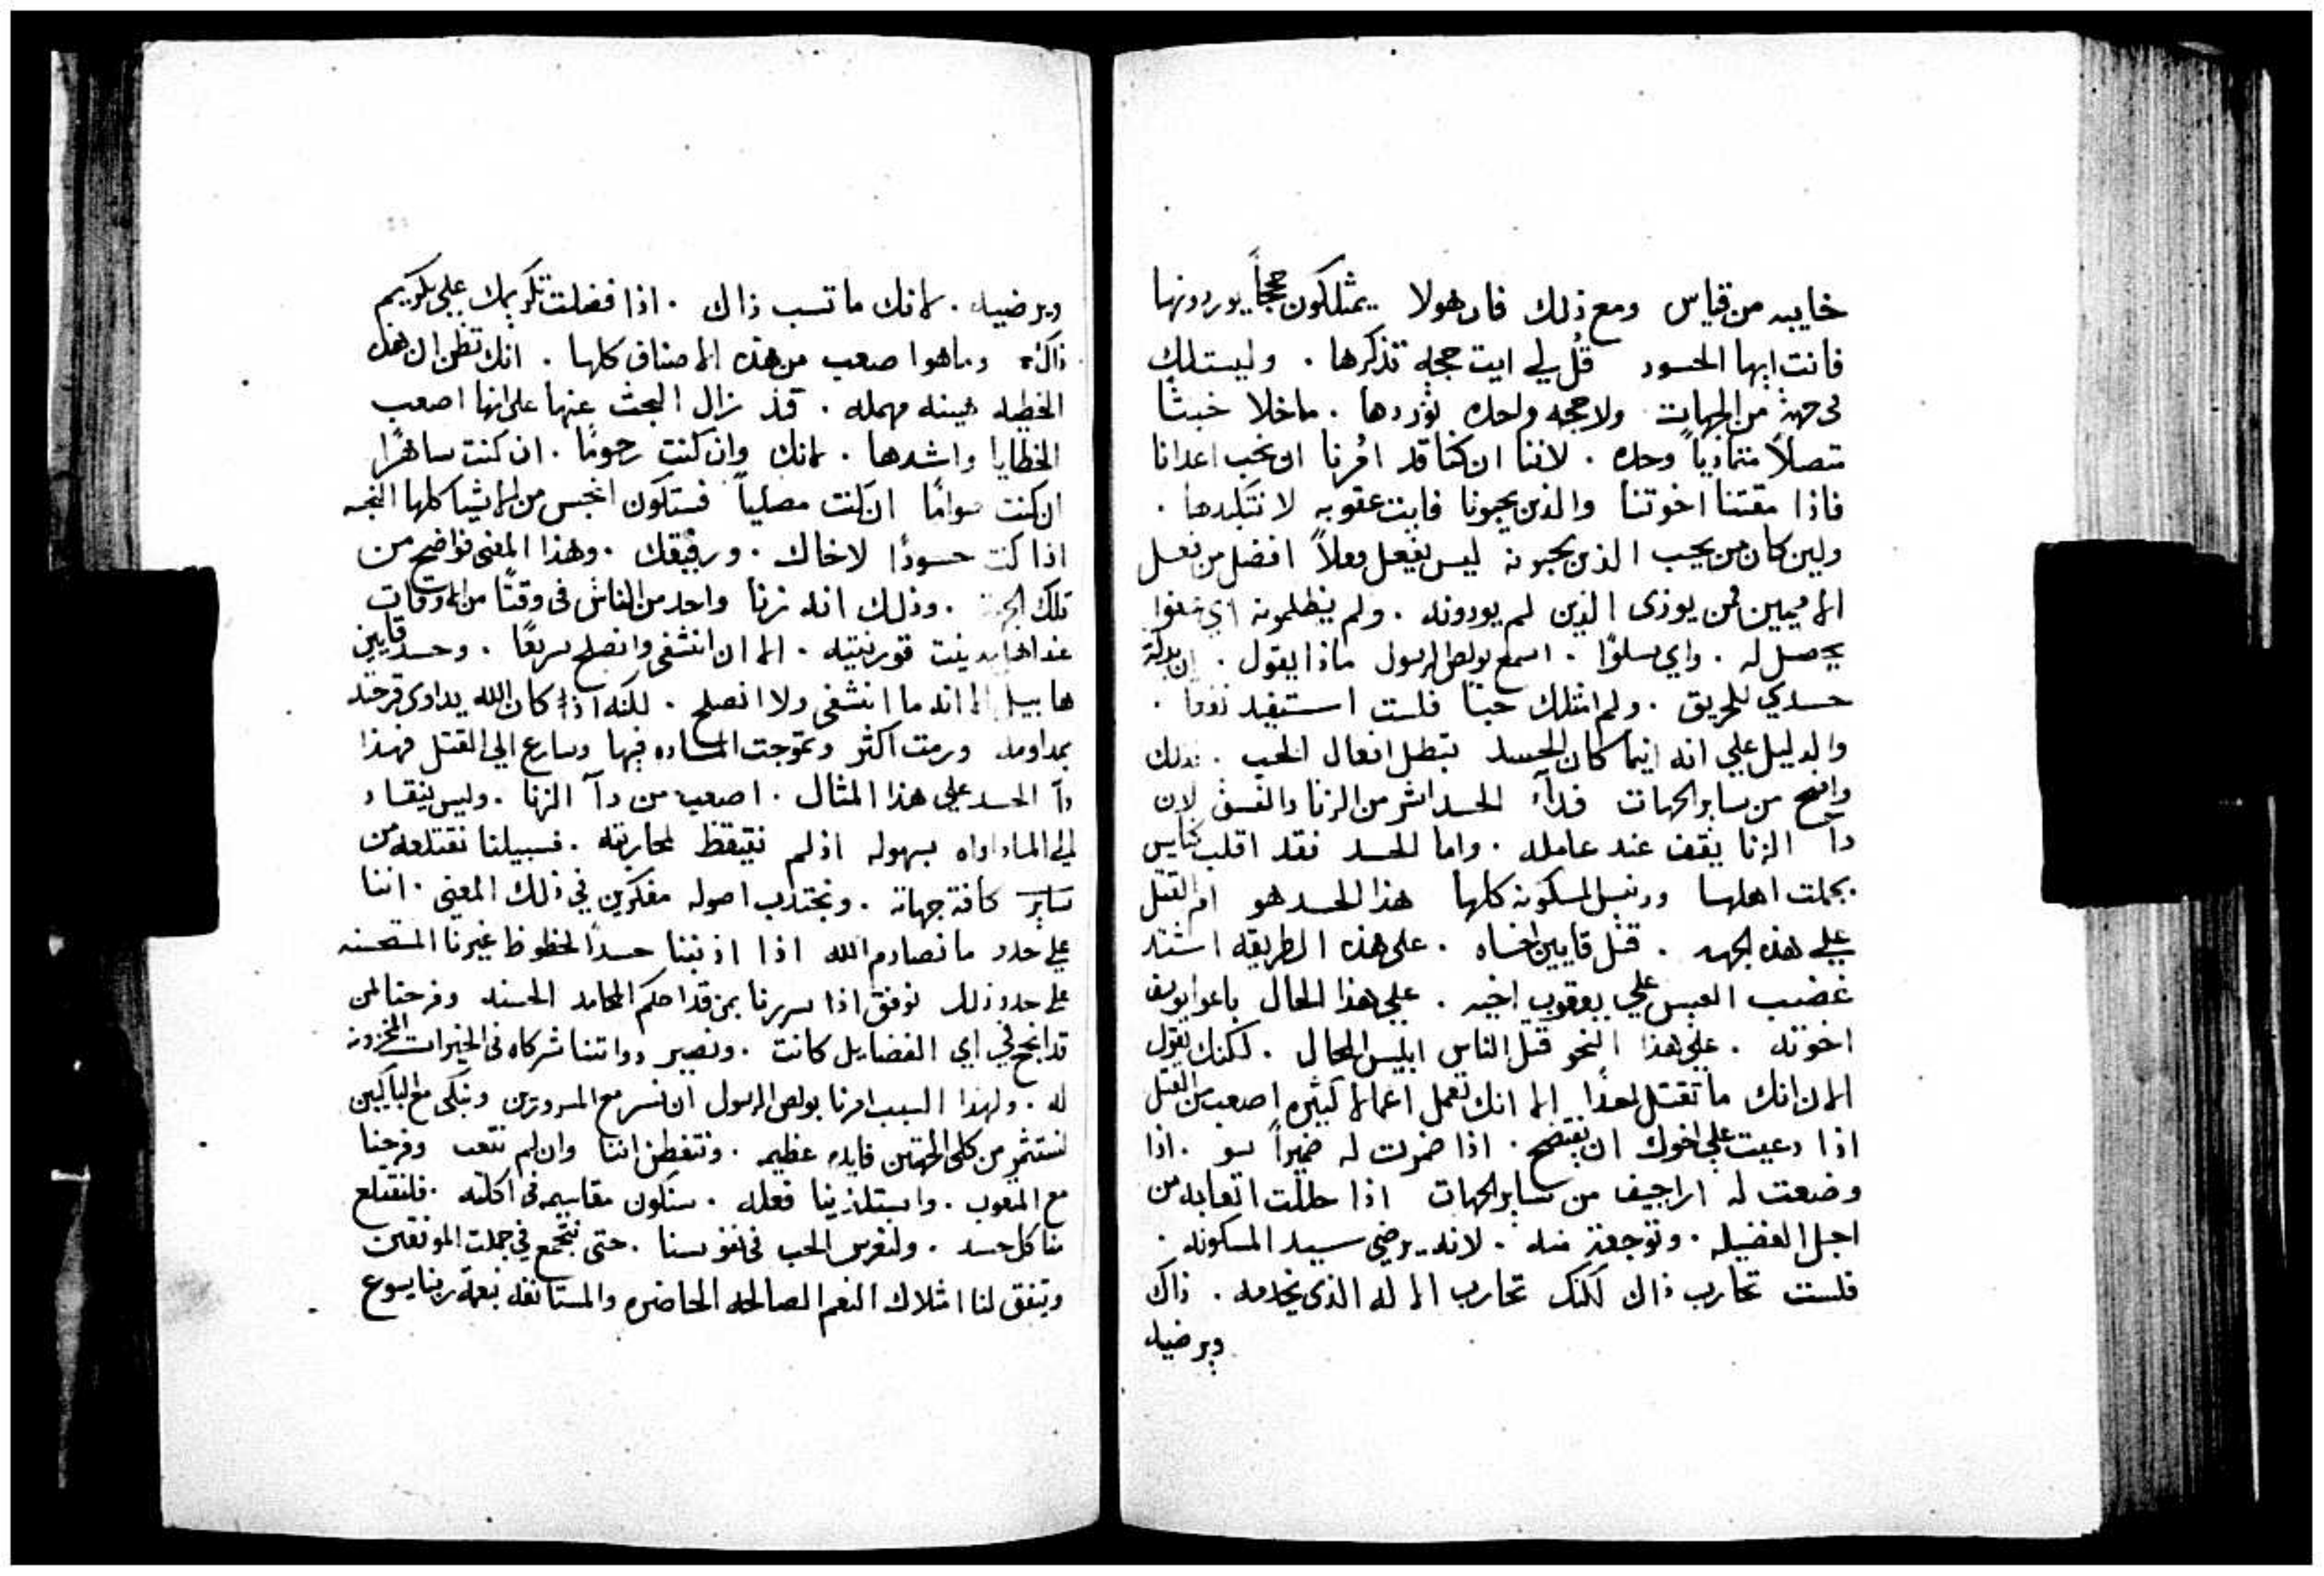 خايبه من قياس ومع ذلك فان هولا يمتلكون حججاً يوردونها
فانت ايها الحسود قُل لي ايت حجه تذكرها . وليست لك
في جهة من الجهات ولا حجه واحده توردها . ماخلا خبثًا
متصلاً متماديًا وحده . لاننا ان كنا قد اُمرنا ان نحب اعدانا
فاذا مقتنا اخوتنا والذين يحبونا فايت عقوبه لا نتكبدها .
ولين كان من يحب الذين يحبونه ليس يفعل فعلاً افضل من فعل
الاميين فمن يوذى الذين لم يوذونه . ولم يظلمونه اي
يحصل له . واي سلوًا . اسمع بولص الرسول ماذا يقول . ان بذلة
جسدي للحريق . ولم امتلك حبًا فلست استفيد نفعا .
والدليل علي انه اينما كان الحسد تبطل افعال الحب . فذلك
واضح من ساير الجهات فدآء الحسد اشر من الزنا والفسق لان
دآ الزنا يقف عند عامله . واما الحسد فقد اقلب كنايس
بجملت اهلها المسكونه كلها هذا الحسد هو ام القتل
علي هذه الجهه . قتل قايين اخاه . على هذه الطريقه اشتد
غضب العيس علي يعقوب اخيه . علي هذا الحال باعوا يوسف
اخوته . علي هذا النحو قتل الناس ابليس المحال . لكنك تقول
الان انك ما تقتل احدًا الا انك تعمل اعمالا كثيره اصعب من القتل
اذا دعيت علي اخوك ان يفتضح . اذا ضمرت له ضميراً سو . اذا
وضعت له اراجيف من ساير الجهات اذا حللت اتعابه من
اجل الفضيله . وتوجعتَ منه . لانه يرضي سيد المسكونه .
فلست تحارب ذاك لكنك تحارب الاله الذي يخدمه . ذاك
ويرضيه
ويرضيه . لانك ما تسب ذاك . اذا فضلت تكريمك علي تكريم
ذاك وما هوا صعب من هذه الاصناف كلها . انك تظن ان هذه
الخطيه هينه مهمله . قد زال البحث عنها على انها اصعب
الخطايا واشدها . لانك وان كنت رحومًا . ان كنت ساهرًا
ان كنت صوامًا ان كنت مصليًا فستكون انجس من الاشيا كلها النجسه
اذا كنت حسودًا لاخاك . ورفيقك . وهذا المعنى فواضح من
تلك الجهة . وذلك انه زنا واحد من الناس في وقتًا من الاوقات
عند اهل مدينت قورنتيه . الا ان انشفى وانصلح سريعًا . وحسد قايين
هابيل الا انه ما انشفى ولا انصلح . لكنه اذا كان الله يداوى قرحته
بمداومه ورمت اكثر وتموجت الماده فيها وسارع الي القتل فهذا
دآ الحسد علي هذا المثال . اصعب من دآ الزنا . وليس ينقاد
الي المداواه بسهوله اذ لم نتيقظ لمحاربته . فسبيلنا نقتلعه من
ساير كافة جهاته . ونجتذب اصوله مفكرين في ذلك المعنى . اننا
علي حدد ما نصادم الله اذا اذنبنا حسدًا لحظوظ غيرنا المستحسنه
على حدد ذلك نوفق اذا سررنا بمن قد احكم المحامد الحسنه وفرحنا لمن
قد انجح في اي الفضايل كانت . ونصير ذواتنا شركاه في الخيرات المخزونه
له . ولهذا السبب امرنا بولص الرسول ان نسر مع المسرورين ونبكى مع الباكيين
لنستثمر من كلى الجهتين فايده عظيمه . ونتفطن اننا وان لم نتعب وفرحنا
مع المتعوب . واستلذينا فعله . سنكون مقاسميه فى اكلته . فلنقتلع
منا كل حسد . ولنغرس الحب في نفوسنا . حتى نجتمع في جملت الموفقين
ويتفق لنا امتلاك النعم الصالحه الحاضره والمستانفه بنعمة ربنا يسوع